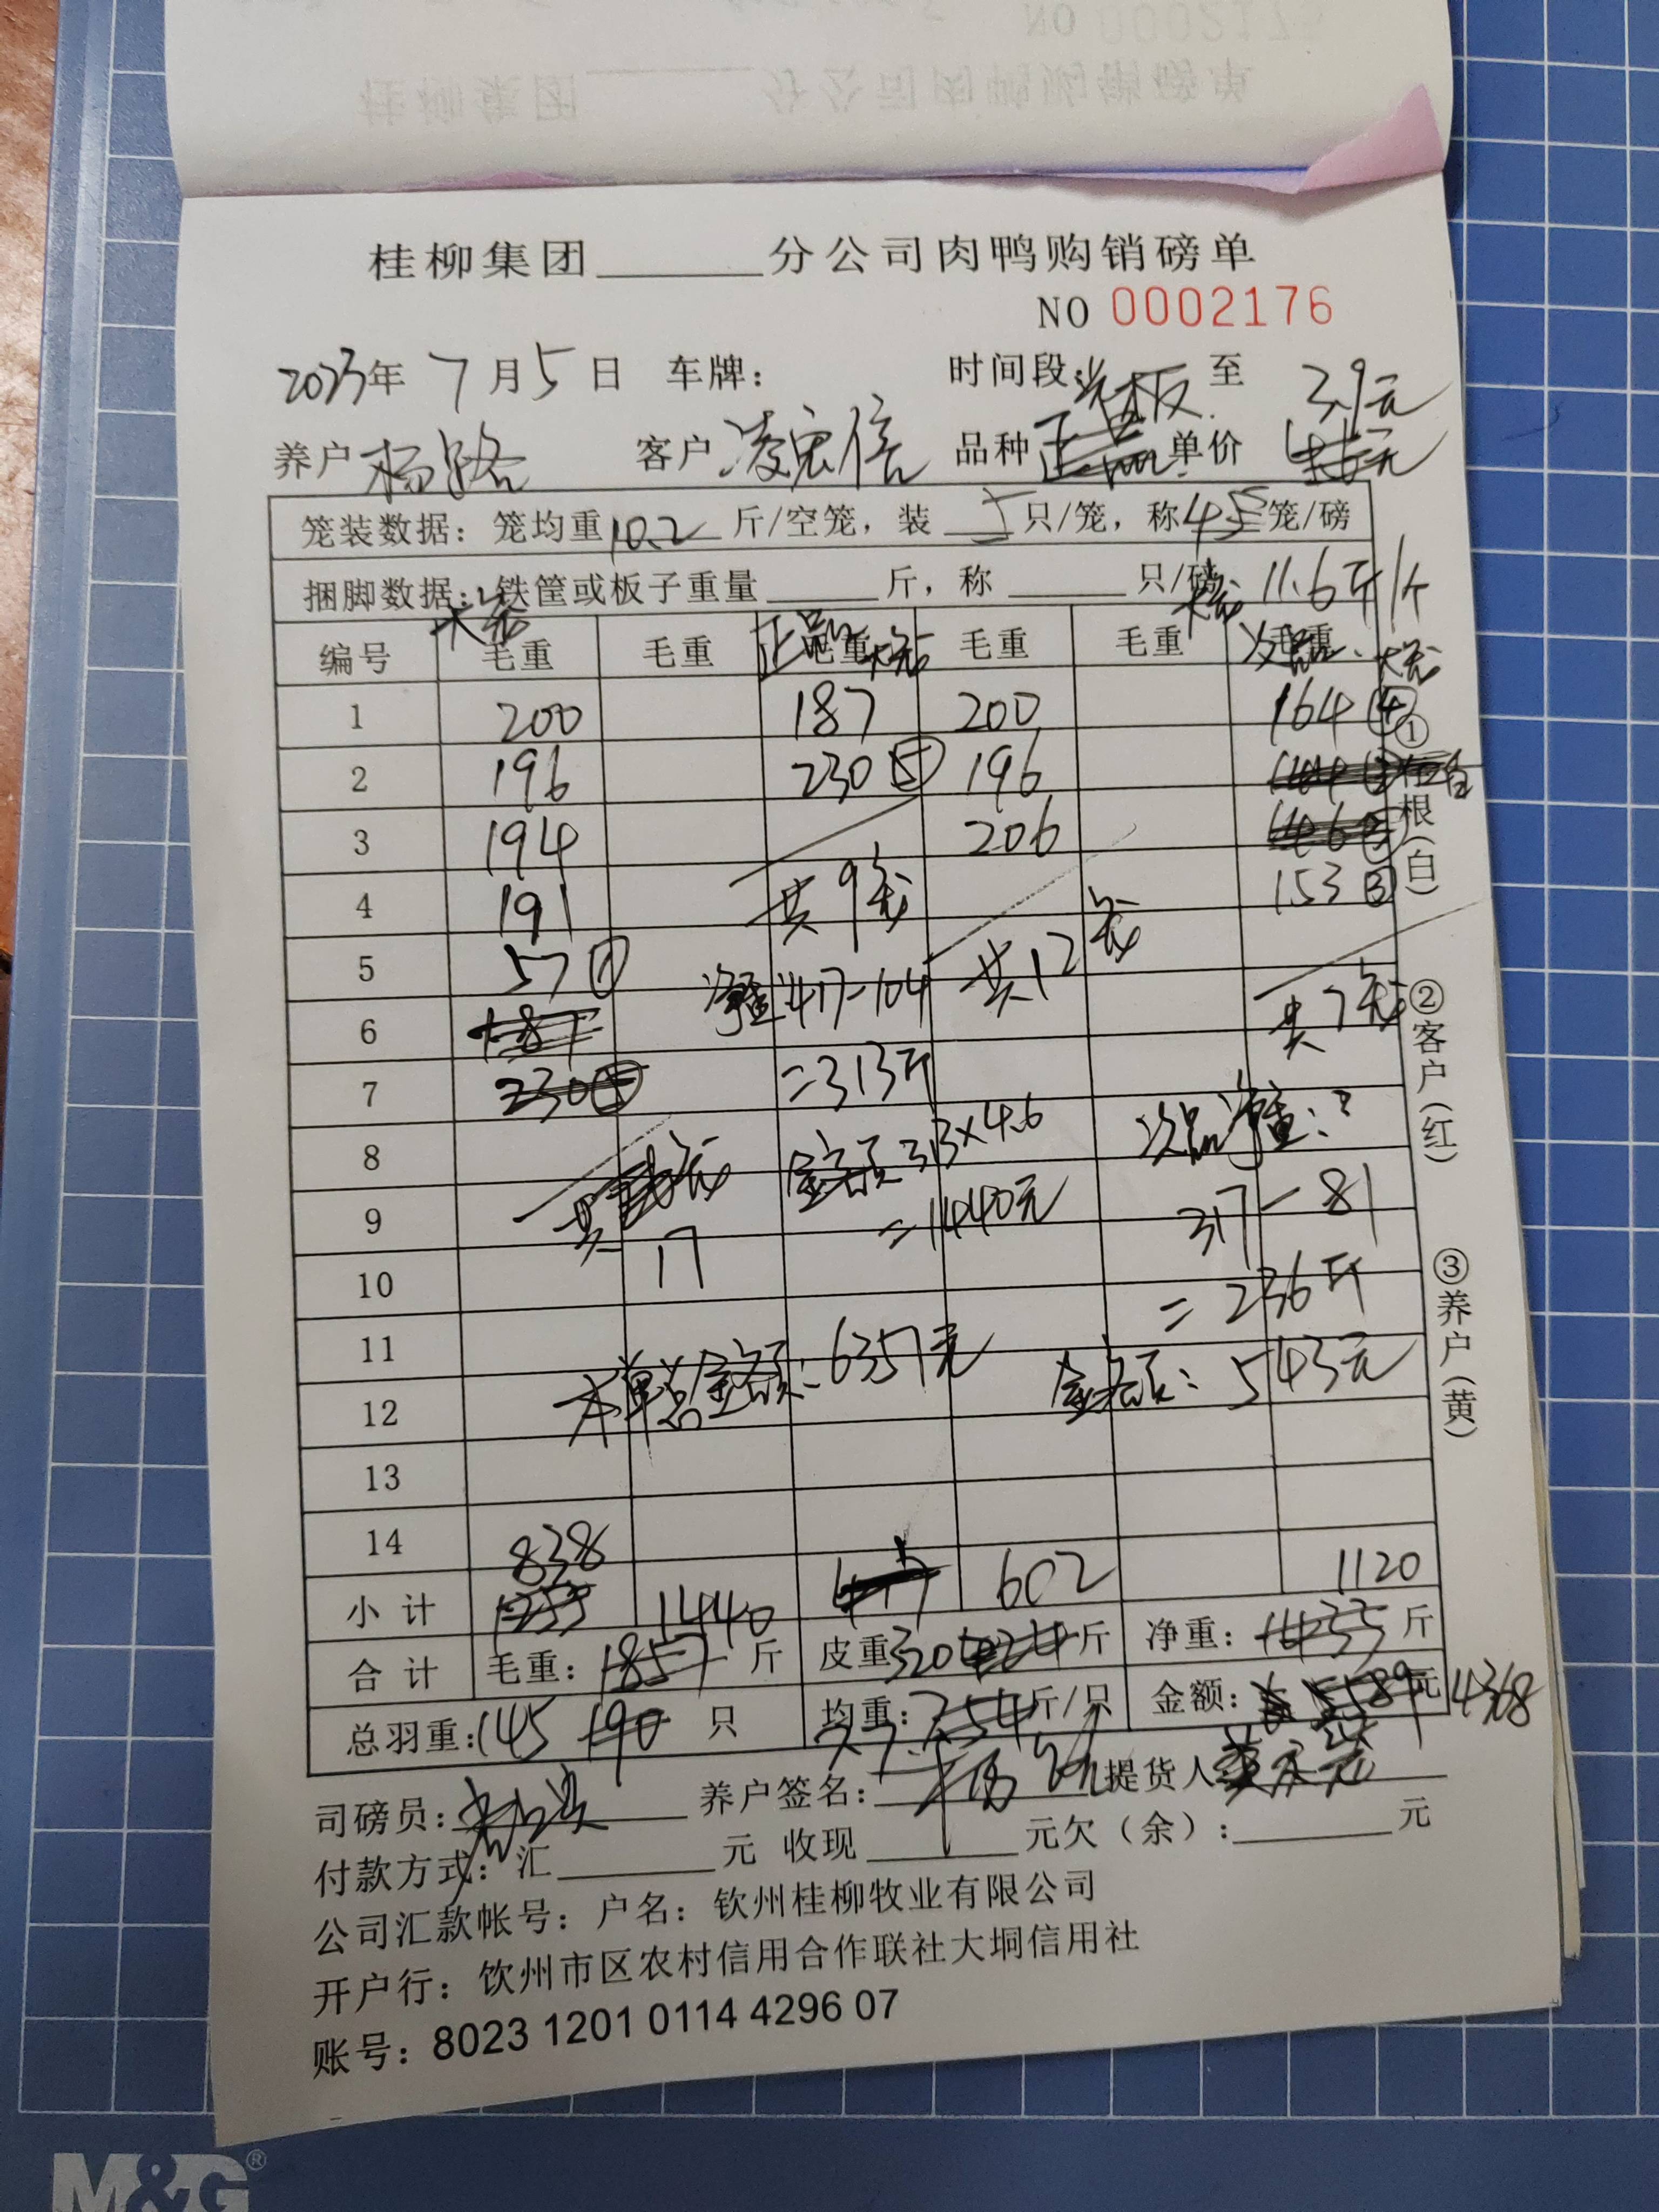 NO 0002175
桂柳集团______分公司肉鸭购销磅单
桂柳集团______分公司肉鸭购销磅单
NO 0002176
2023年 7月5日 车牌： 时间段：光板 至 3.9元
养户 杨路 客户 凌宏信 品种 正品 单价
笼装数据：笼均重10.2斤/空笼，装 5 只/笼，称45笼/磅
捆脚数据：铁筐或板子重量______斤，称______只/磅 11.6斤/个
编号 毛重 毛重 正品毛重 毛重 毛重 次品毛重
1 200 187 200 164 ④
2 196 230 ⑤ 196
3 194 206
4 191 共9笼 153 ③
5 57 ① 净重417-104 共12笼
6 187 共7笼
7 230 ⑤ =313斤
8 金额313×4.6 次品净重：
9 共 =1440元 317-81
10 17 =236斤
11
12 本单总金额：6357元 金额：543元
13
14 838
小计 1253 1440 417 602 1120
合计 毛重：1857斤 皮重320 斤 净重：1433斤
总羽重：145 190 只 均重：7.7 7.54斤/只 金额： 5589元 4368
司磅员： 养户签名：杨路 提货人
付款方式：汇______元 收现______元欠（余）：______元
公司汇款帐号：户名：钦州桂柳牧业有限公司
开户行：钦州市区农村信用合作联社大垌信用社
账号：8023 1201 0114 4296 07
①存根（白）
②客户（红）
③养户（黄）
M&G®